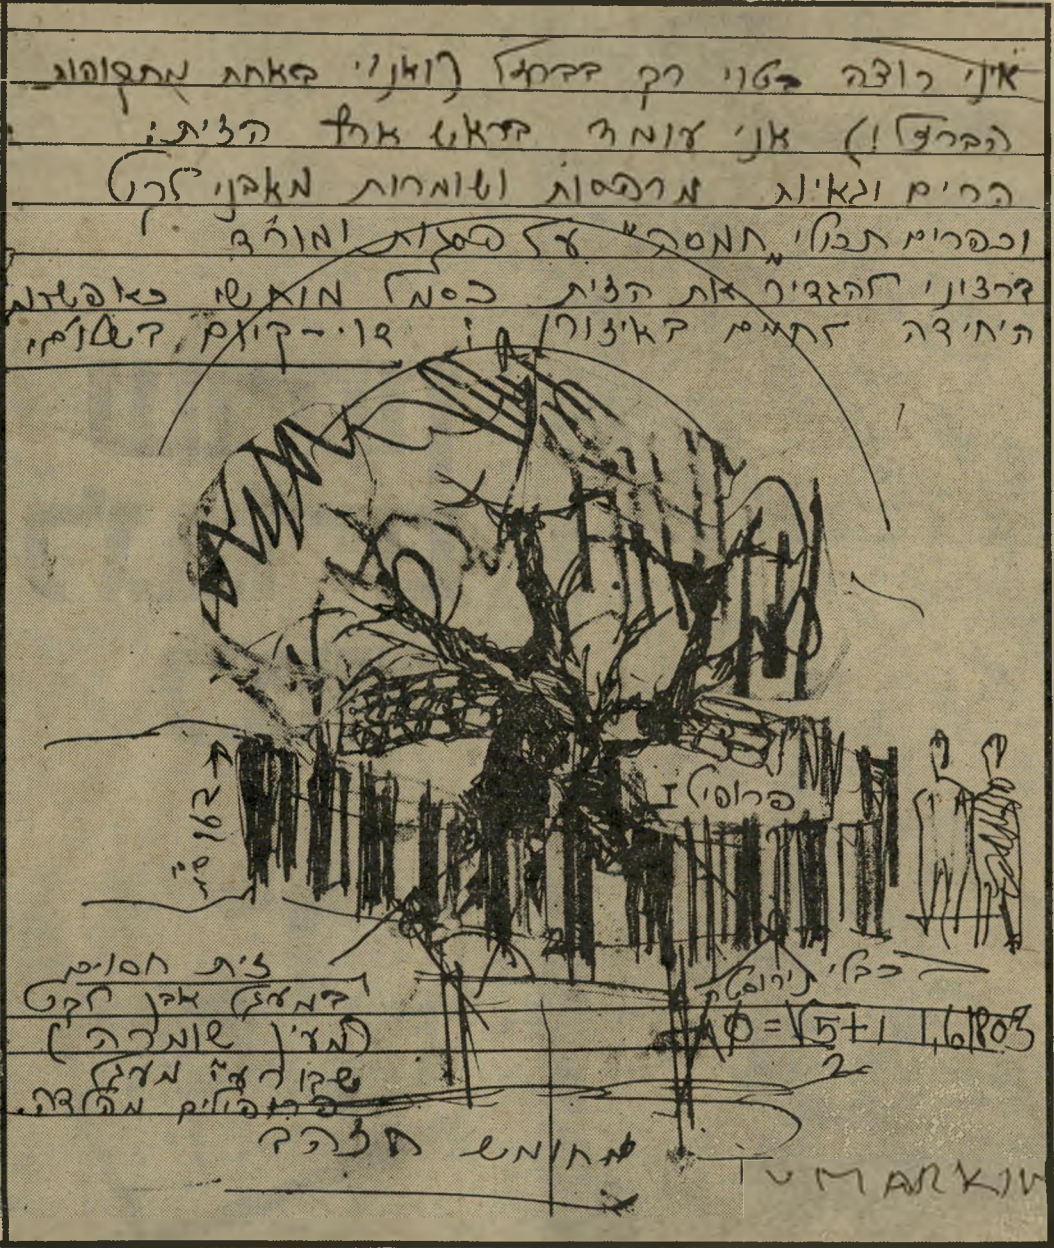 איני רוצה בטוי רק בברזל (ואני באחת מתקופות
הברזל!) אני עומד בראש ארץ הזית:
הרים וגאיות מרפסות ושומרות מאבני לקט
וכפרים תכולי "חמסה" על פסגות ומורד
ברצוני להגדיר את הזית כסמל מוחשי כאפשרות
היחידה לחיים באיזור: דו-קיום בשלום.
פרופיל I
162 ס"מ
זית חסום
במעגל אבן לקט
(מעין שומרה)
שבור ע"י מעגל
פרופילים מפלדה.
כבלי
φ=√5+1 1,61803
2
מחומש הזהב
MARKIN